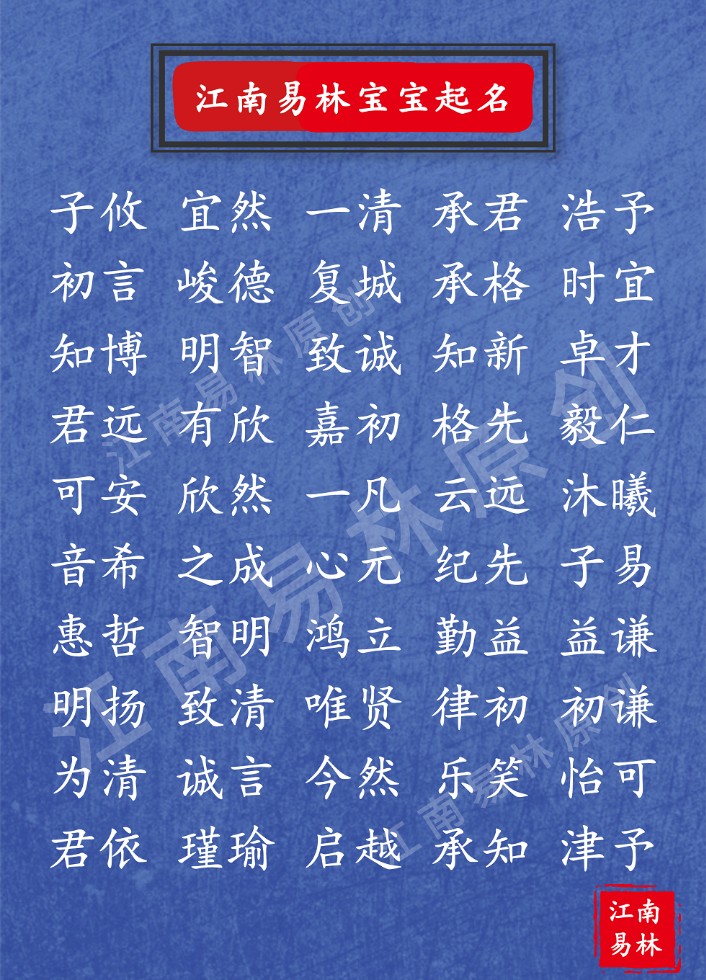 江南易林宝宝起名
子攸 宜然 一清 承君 浩予
初言 峻德 复城 承格 时宜
知博 明智 致诚 知新 卓才
君远 有欣 嘉初 格先 毅仁
可安 欣然 一凡 云远 沐曦
音希 之成 心元 纪先 子易
惠哲 智明 鸿立 勤益 益谦
明扬 致清 唯贤 律初 初谦
为清 诚言 今然 乐笑 怡可
君依 瑾瑜 启越 承知 津予
江南易林原创
江南易林原创
江南易林原创
江南
易林